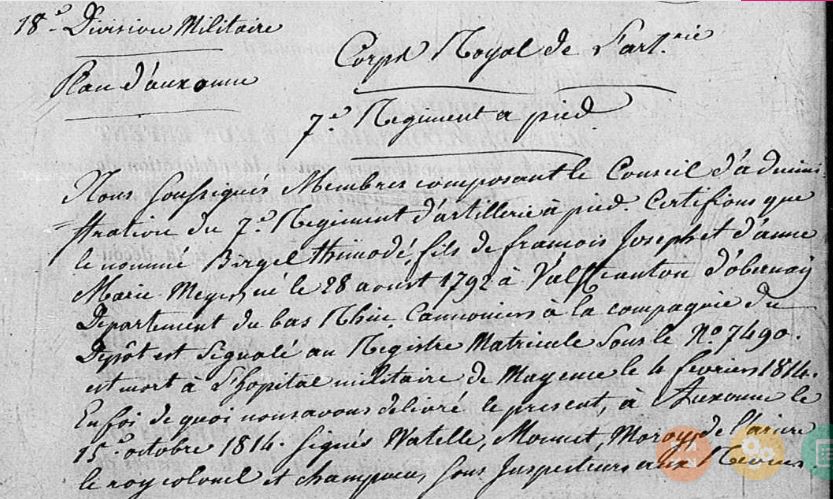 18e Division Militaire
Plan d'auxonne
Corps Royal de l'artrie
7e Regiment a pied
Nous Soussignés Membres composant le Conseil d'admini
stration du 7e Regiment d'artillerie à pied. Certifions que
le nommé Birgel thimodé, fils de francois Joseph et d'anne
Marie Meyer, né le 28 aoust 1792 à Valff canton d'obernay
Departement du bas Rhin Cannoniers à la compagnie du
Depôt est Signalé au Registre Matricule Sous le No 7490.
est mort a l'hopital militaire de Mayence le 4 fevrier 1814.
En foi de quoi nous avons delivré le present, à Auxonne le
15e octobre 1814. Signés Watelle, Mounet, Moroy, de
le roy colonel et champeau, Sous Inspecteur aux Revues.